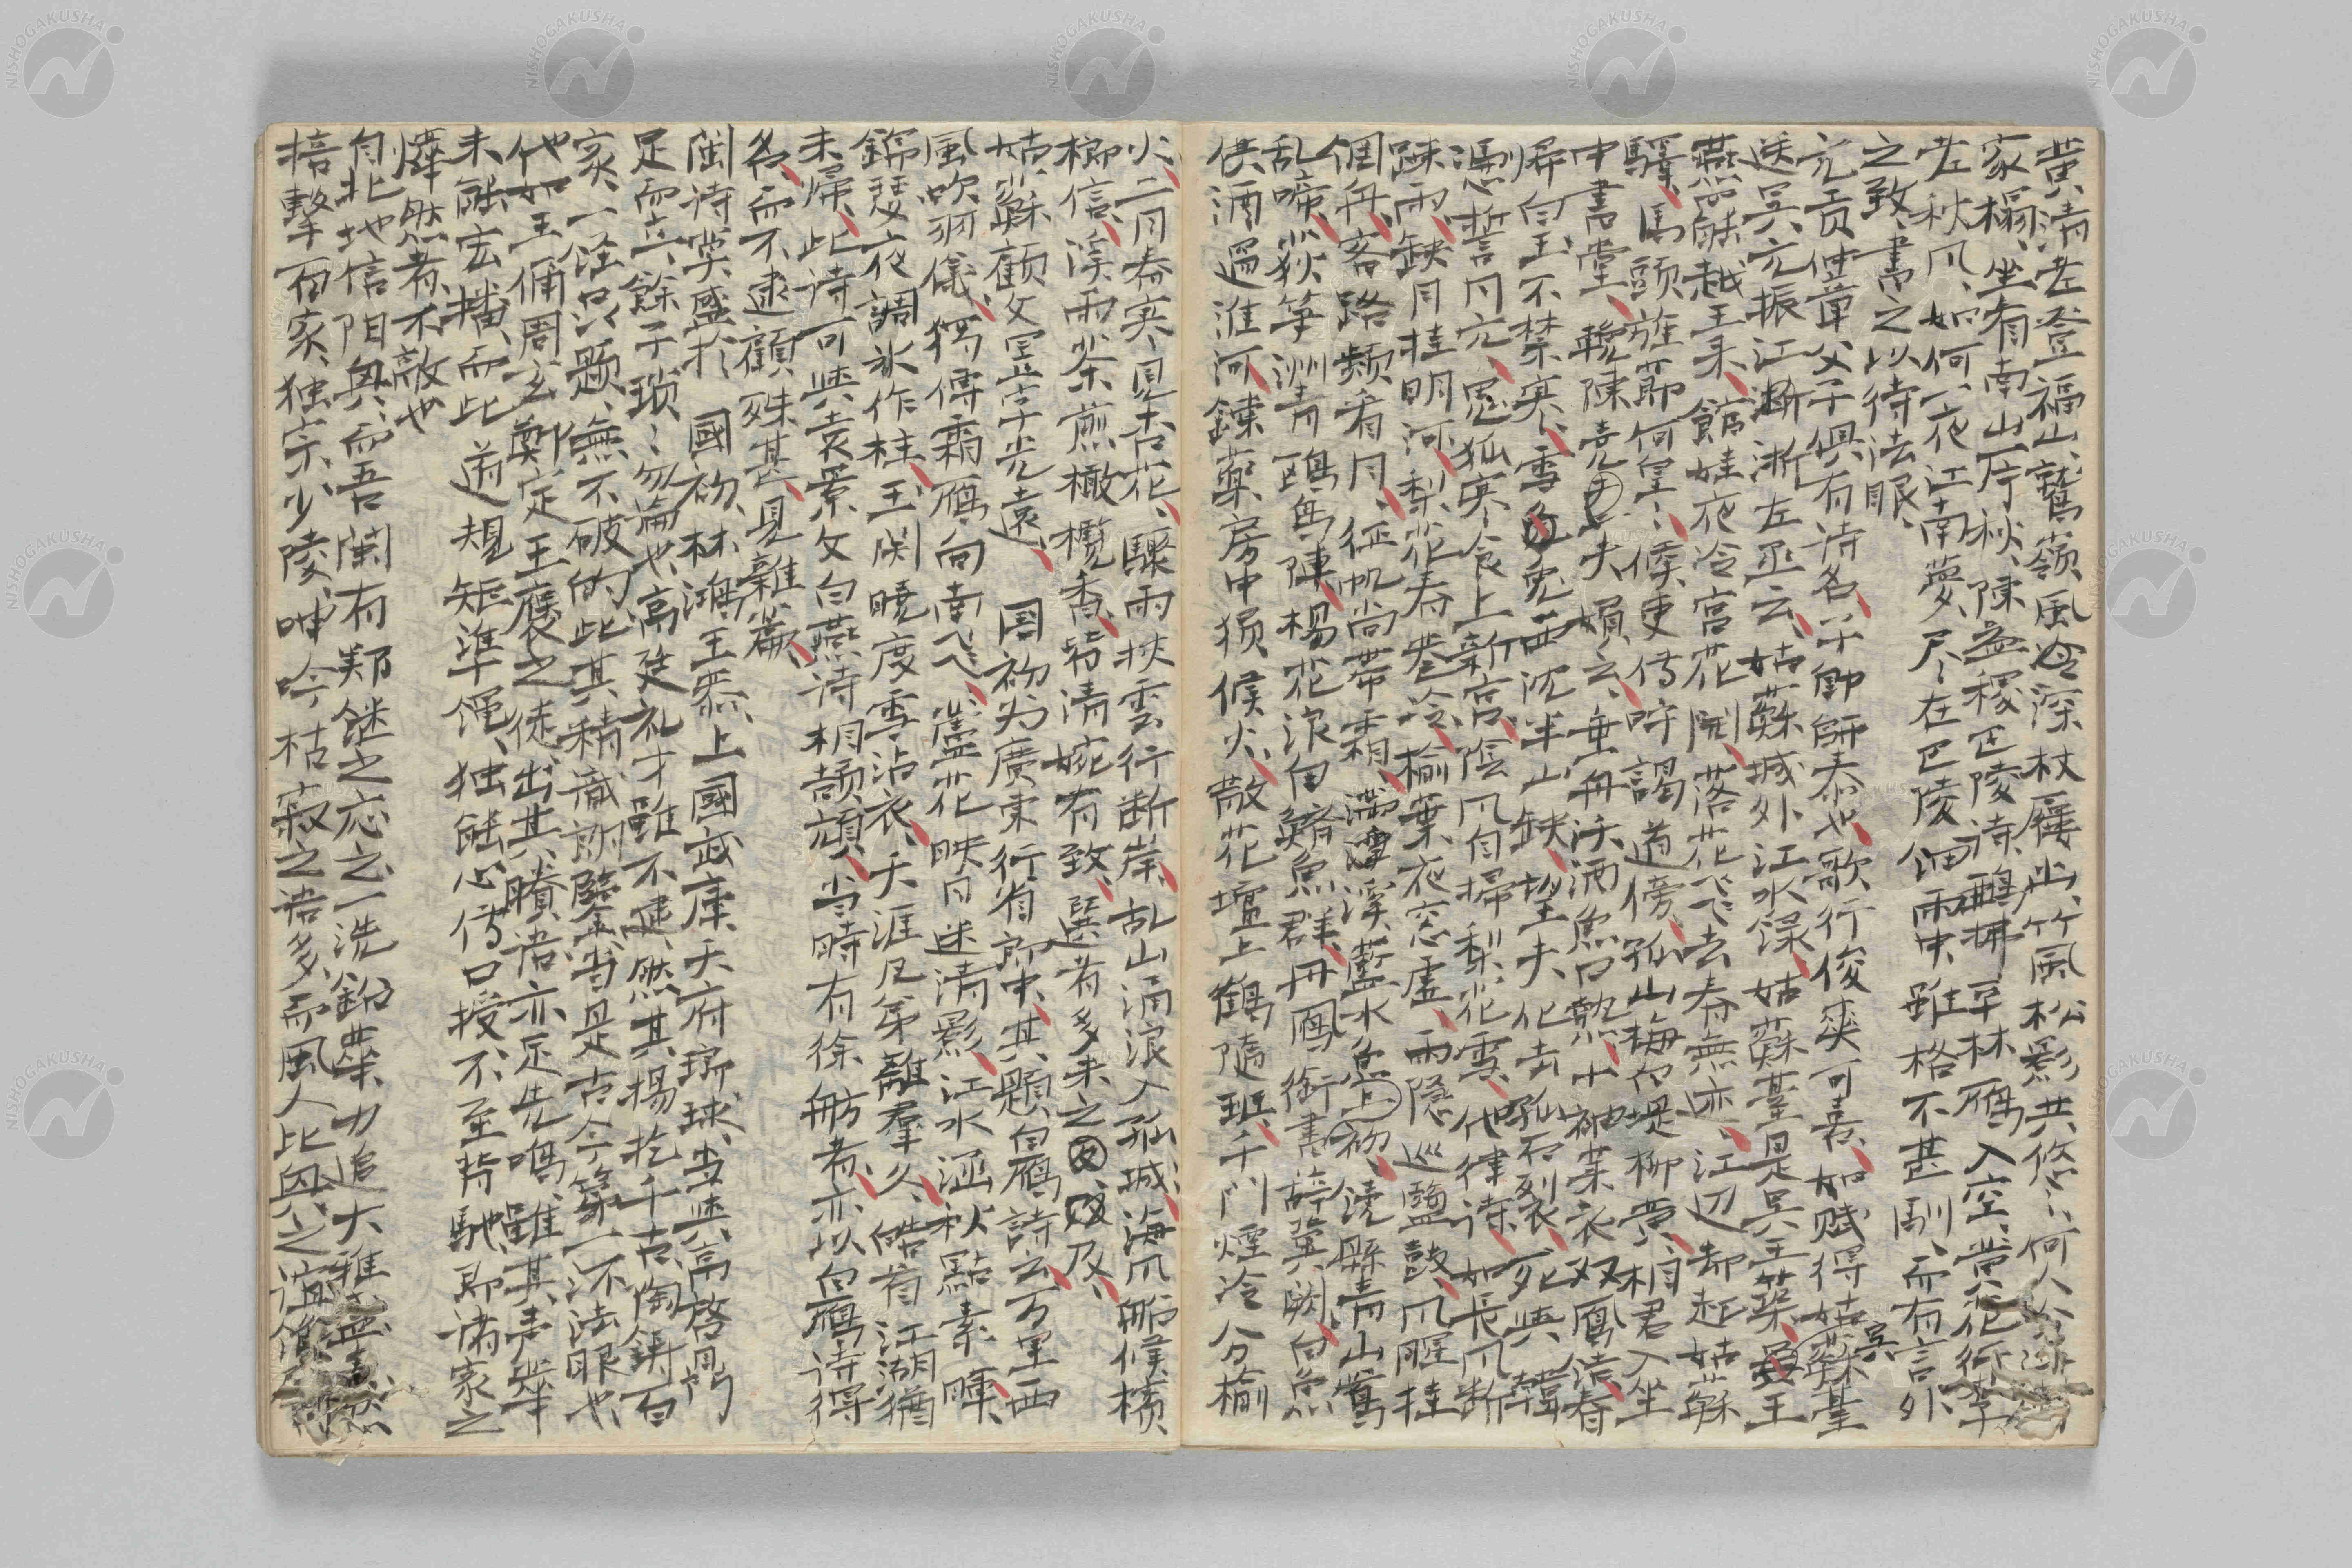 黄清老登福山鷲嶺風冷深杖屨出竹風松影共悠〻何人分
家榻坐有南山一片秋陳益稷巴陵詩醒拂平林雁入空豊花行李
老秋风如何一夜江南夢尽在巴陵細雨中雖格不甚馴而有言外
之致書之以待法眼
元貢仲章父子俱有詩名子即師泰也歌行俊爽可喜如賦得姑蘇臺
送吴元振江浙左丞云姑蘇城外江水渌姑蘇臺是吴王築吴王
燕酣越王来館娃夜冷宫花開落花飞去春無迹江辺却起姑蘇
驛馬頭旌節何皇〻候吏傳呼謁道傍孤山梅白堤柳黄相君入坐
中書堂輓陳堯夫媍云垂舟沃酒魚口熱小袖葉衣双鳳結春
屏白玉不禁寒雪兔西沈半山缺望夫化去孤石列衣死與韓
馮誓月亢恩狐寒食上新宫陰风自掃梨花雪他律詩如長风断
疎雨缺月挂明河梨花春巷冷榆葉夜窓虚雨隐巡鹽鼓风腥挂
個舟客路頻看月征帆尚带霜溪藍水色上初饒縣青山鶯
乱啼荻笋洲青鷗鳥陣楊花浪白鱭魚群丹鳳銜書辭冀闕白魚
供酒過淮河錬藥房中猿候火散花壇上鶴隨班千门煙冷分榆
火二月春寒見杏花驟雨挾雲行断岸乱山涌浪入孤城海风船候檳
榔信溪雨茶煎橄欖香皆清婉有致選者多未之及
姑蘇顧文昱字光遠国初为廣東行省郎中其題白鴈詩云万里西
風吹羽儀猶傳霜雁向南飞蘆花映月迷清影江水涵秋點素暉
錦瑟夜調氷作柱玉関曉度雪沾衣天涯兄弟離羣久皓首江湖猶
未帰此詩可與袁景文白燕詩相頡頏当時有徐舫者亦以白鴈詩得
名而不逮顧殊甚見雜纂
閩詩莫盛於國初林鴻王恭上國武庫天府琅球当與高啓鼎
足而立餘子瑣〻勿論也高廷礼才雖不逮然其揚扢千古陶鋳百
家一經品題無不破的此其精識朗鑒当是古今第一不法眼也
他如王偁周玄鄭定王褒之徒出其賸语亦足先鳴雖其声華
未能宏播而此道規矩準绳独能心傳口授不至背馳那诸家之
燁然者不敵也
自北地信陽興而吾閩有鄭继之応之一洗鉛華力追大雅
掊擊百家独宗少陵呻吟枯寂之语多而風人比兴之谊